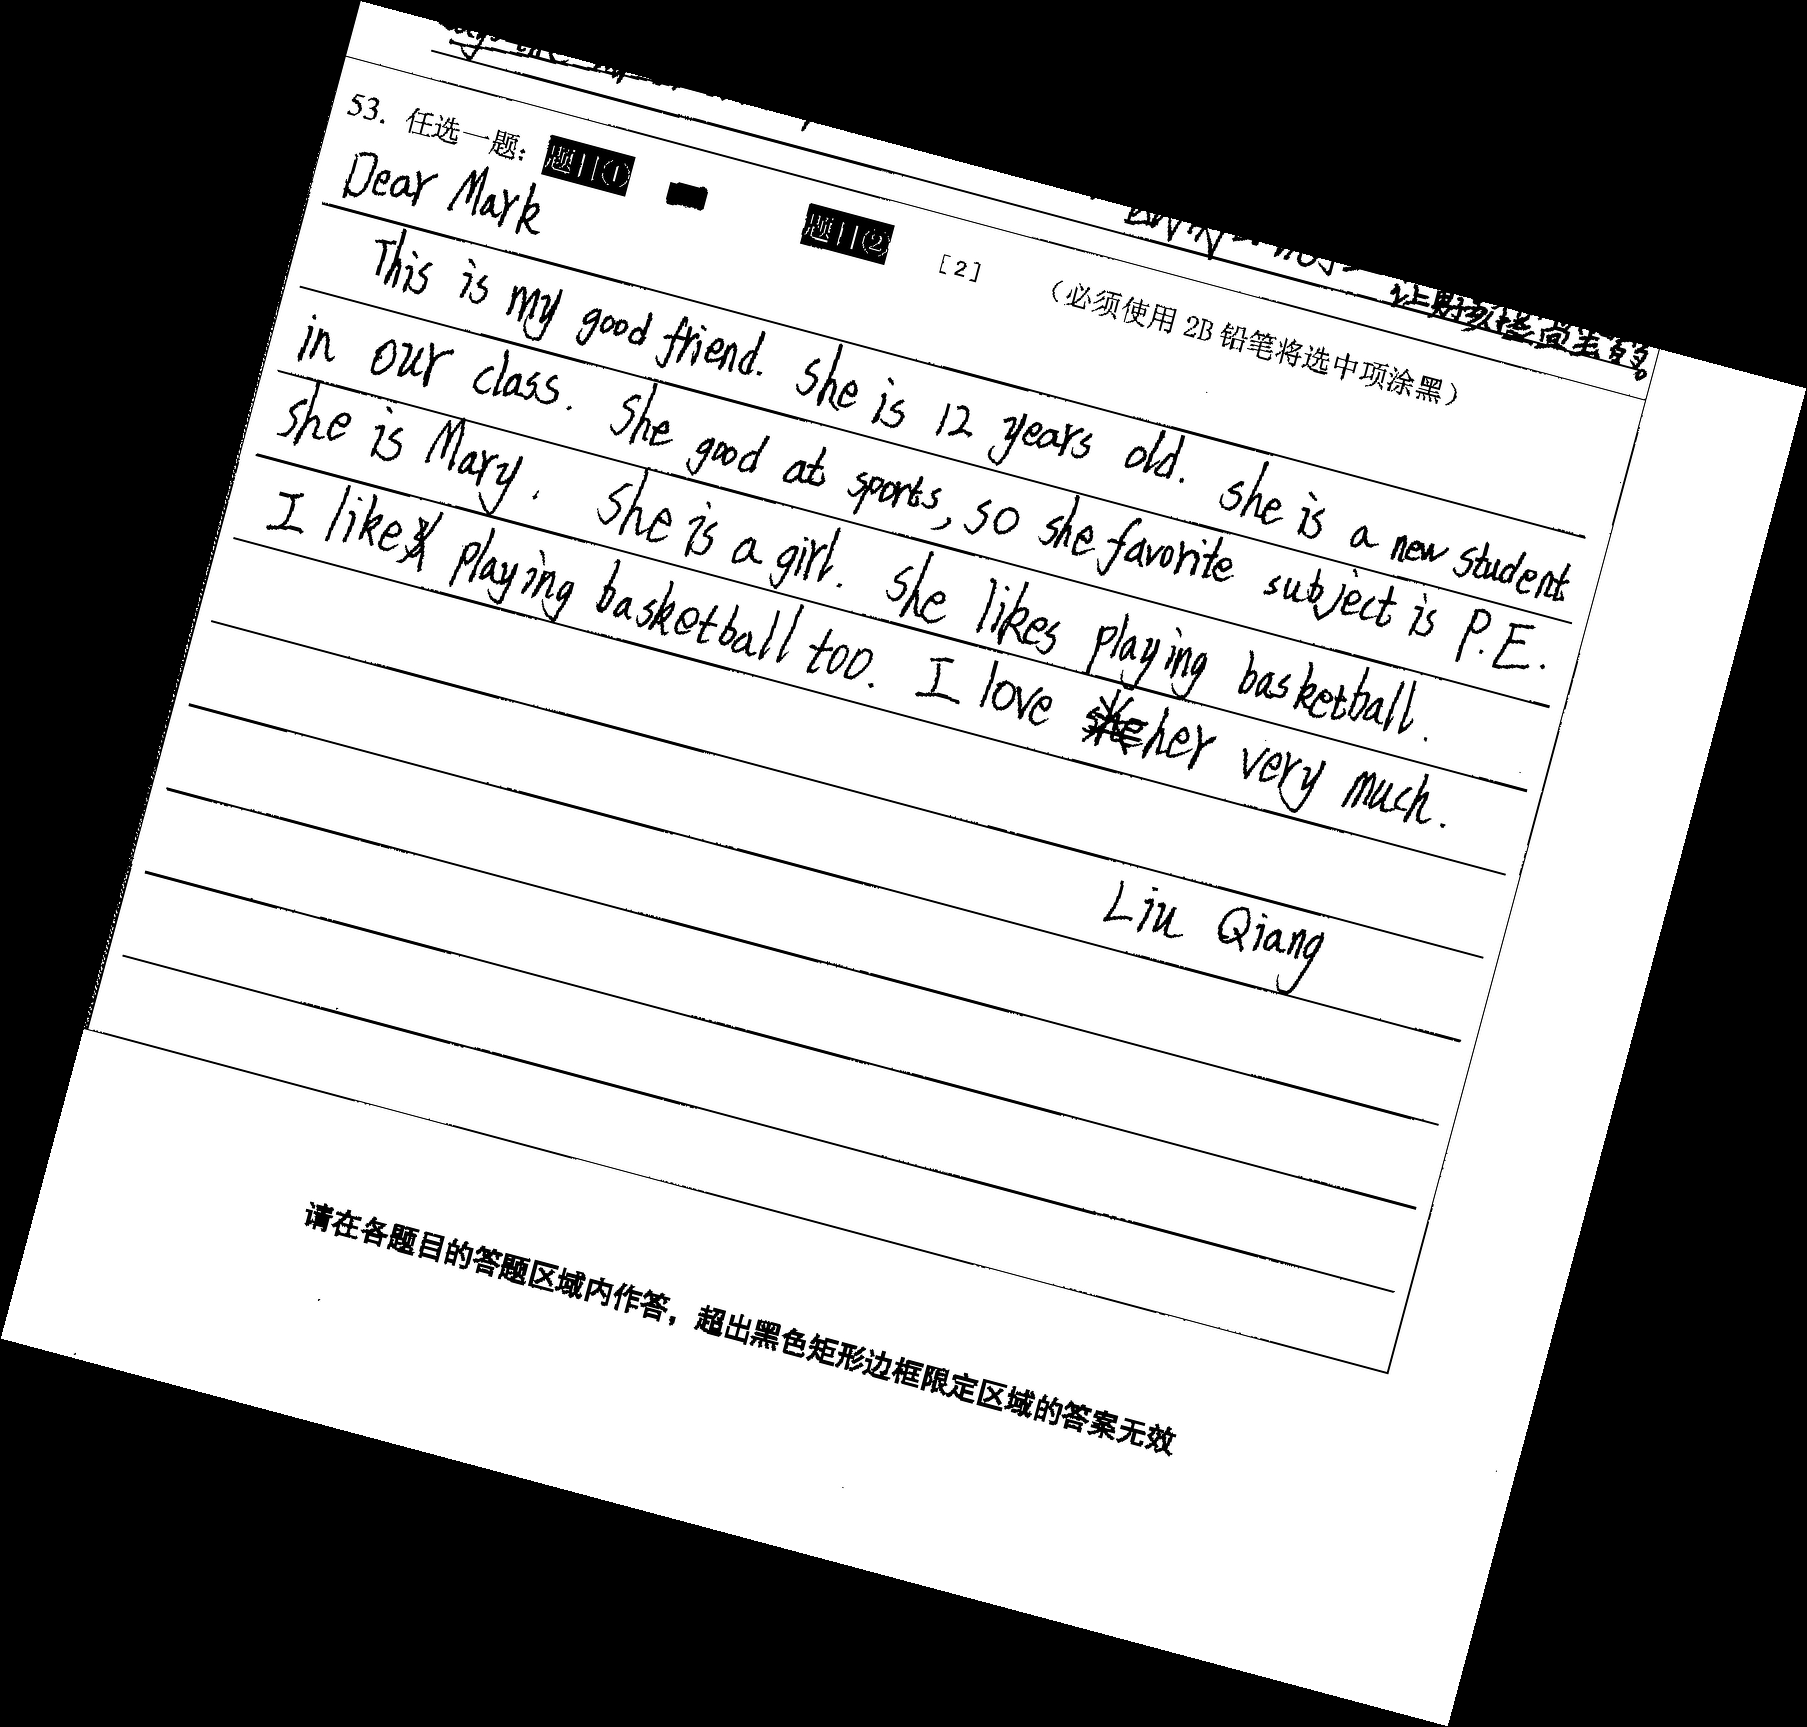 53. 任选一题: 题目① 题目② [2] （必须使用 2B 铅笔将选中项涂黑）
Dear Mark
This is my good friend. She is 12 years old. She is a new student
in our class. She good at sports, so she favorite subject is P.E.
She is Mary. She is a girl. She likes playing basketball.
I like playing basketball too. I love her very much.
Liu Qiang
请在各题目的答题区域内作答，超出黑色矩形边框限定区域的答案无效